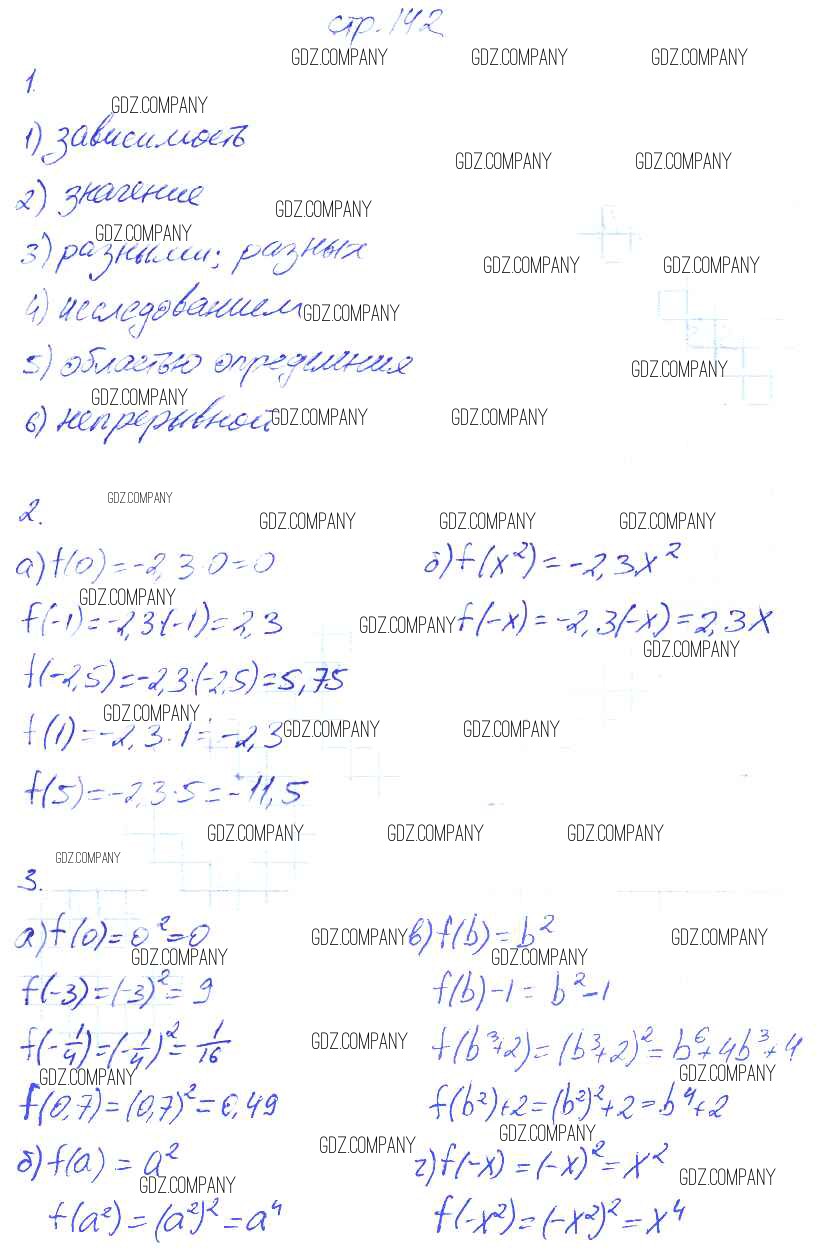 стр. 142
GDZ.COMPANY GDZ.COMPANY GDZ.COMPANY
1.
GDZ.COMPANY
1) зависимость
GDZ.COMPANY GDZ.COMPANY
2) значение
GDZ.COMPANY
GDZ.COMPANY
3) разными; разных
GDZ.COMPANY GDZ.COMPANY
4) исследованием
GDZ.COMPANY
5) областью определения
GDZ.COMPANY
GDZ.COMPANY
6) непрерывной
GDZ.COMPANY GDZ.COMPANY
2.
GDZ.COMPANY
GDZ.COMPANY GDZ.COMPANY GDZ.COMPANY
а) f(0) = -2,3·0 = 0
б) f(x²) = -2,3x²
GDZ.COMPANY
f(-1) = -2,3·(-1) = 2,3
GDZ.COMPANY
f(-x) = -2,3(-x) = 2,3x
GDZ.COMPANY
f(-2,5) = -2,3·(-2,5) = 5,75
GDZ.COMPANY
f(1) = -2,3·1 = -2,3
GDZ.COMPANY GDZ.COMPANY
f(5) = -2,3·5 = -11,5
GDZ.COMPANY GDZ.COMPANY GDZ.COMPANY
GDZ.COMPANY
3.
а) f(0) = 0² = 0
GDZ.COMPANY
в) f(b) = b²
GDZ.COMPANY
GDZ.COMPANY GDZ.COMPANY
f(-3) = (-3)² = 9
f(b) - 1 = b² - 1
f(-1/4) = (-1/4)² = 1/16
GDZ.COMPANY
f(b³+2) = (b³+2)² = b⁶+4b³+4
GDZ.COMPANY GDZ.COMPANY
f(0,7) = (0,7)² = 0,49
f(b²)+2 = (b²)²+2 = b⁴+2
GDZ.COMPANY
б) f(a) = a²
GDZ.COMPANY
г) f(-x) = (-x)² = x²
GDZ.COMPANY GDZ.COMPANY
f(a²) = (a²)² = a⁴
f(-x²) = (-x²)² = x⁴